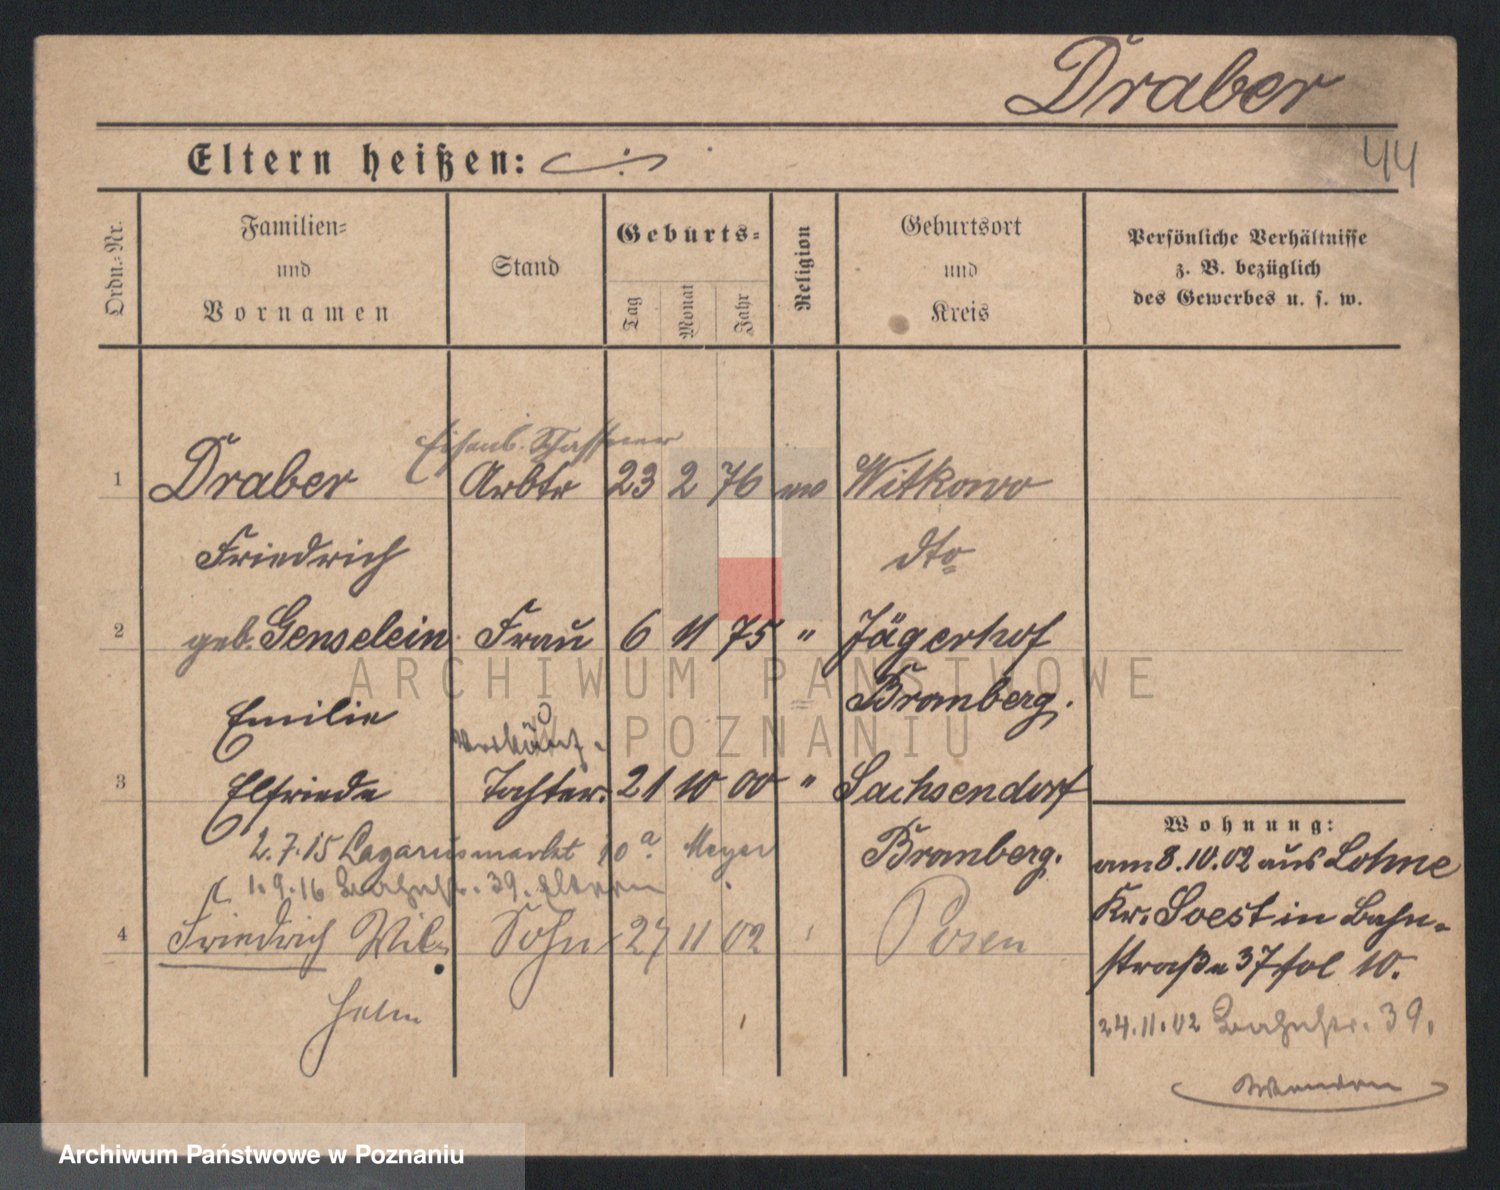 Draber
44
Eltern heißen:
Ordn.-Nr.
Familien-
und
Vornamen
Stand
Geburts-
Tag
Monat
Jahr
Religion
Geburtsort
und
Kreis
Persönliche Verhältnisse
z. B. bezüglich
des Gewerbes u. s. w.
Eisenb. Schaffner
1 Draber Arbtr 23 2 76 ev Witkowo
Friedrich dto
2 geb. Genselein Frau 6 11 75 " Jägerhof
Emilie Bromberg.
Verkäuf.
3 Elfriede Tochter. 21 10 00 " Sachsendorf
Bromberg.
2.7.15 Lazarusmarkt 10a. Meyer
1.9.16 Bahnstr. 39. Eltern
4 Friedrich Wil- Sohn 27 11 02 Posen
helm
Wohnung:
am 8.10.02 aus Lohne
Kr. Soest in Bahn-
straße 37 fol 10.
24.11.02 Bahnstr. 39.
Wenden
ARCHIWUM PAŃSTWOWE
POZNANIU
Archiwum Państwowe w Poznaniu